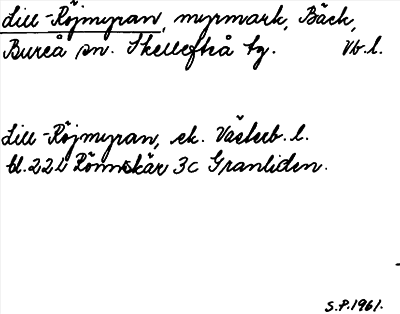 Lill-Röjmyran, myrmark, Bäck,
Bureå sn. Skellefteå tg. Vb.l.
Lill-Röjmyran, ek. Västerb.l.
bl.22L Rönnskär 3c Granliden.
S.P.1961.